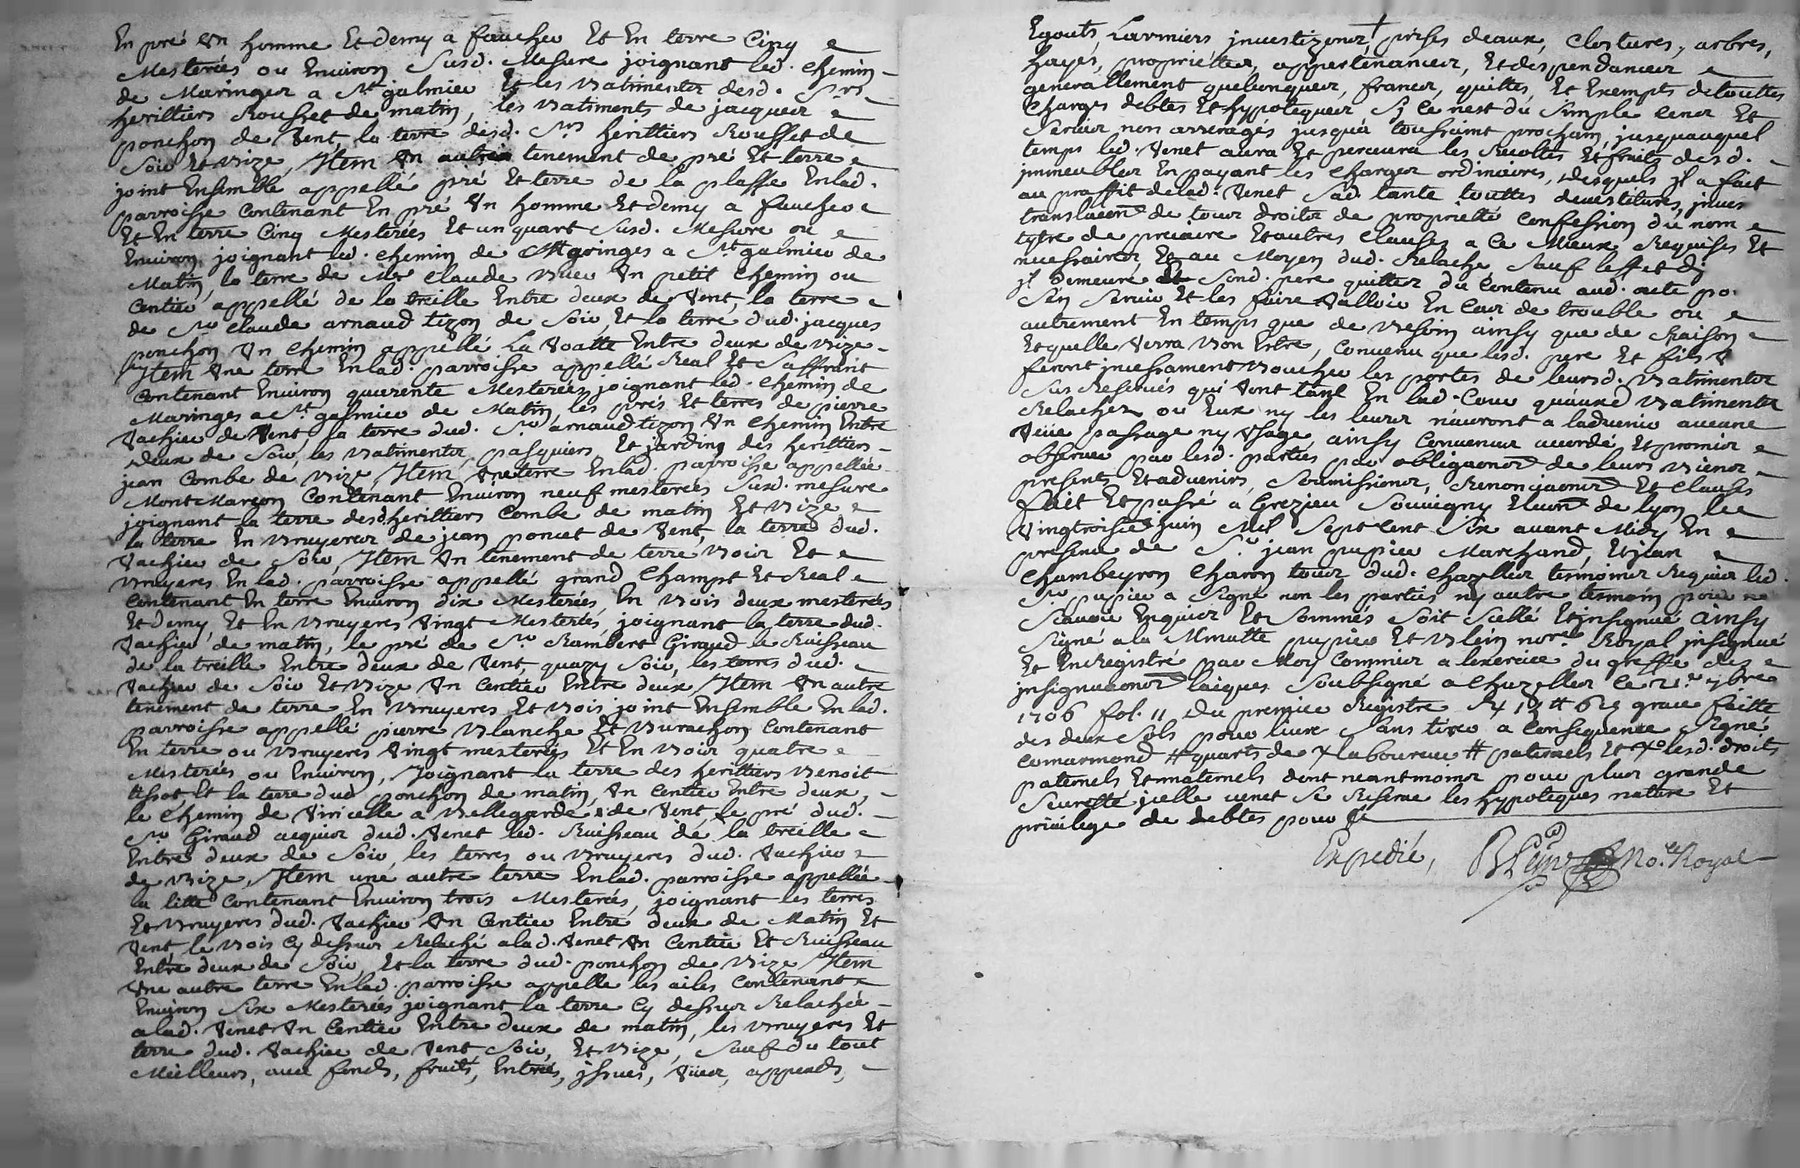 En pré Un homme Et demy a faucher Et En terre Cinq
Mesterées ou Environ Susd. Mesure joignant led. chemin
de Maringes a St galmier Et les Batimentz desd. Srs
herittiers Rousset de matin, les batiments de jacques
ponchon de Vent, la terre desd. Srs herittiers Rousset de
Soir Et Bize, Item Un autre tenement de pré Et terre
joint Ensemble appellé pré Et terre de la plasse En lad.
parroisse Contenant En pré Un homme Et demy a faucher
Et En terre Cinq Mesterées Et un quart Susd. Mesure ou
Environ, joignant led. chemin de Maringes a St galmier de
Matin, la terre de Mre Claude Un petit Chemin ou
Centier appellé de la treille Entre deux de Vent, la terre
de Sr Claude arnaud tizon de Soir, Et la terre dud. jacques
ponchon Un Chemin appellé La Voatte Entre deux de Bize
Item Une terre En lad. parroisse appellé Real Et Saffrant
Contenant Environ quarente Mesterées, joignant led. chemin de
Maringes a St galmier de Matin, les prés Et terres de pierre
Vachier de Vent, la terre dud. Sr arnaud tizon Un Chemin Entre
deux de Soir, les batimentz, pasquiers Et jardins des herittiers
jean Combe de Bize, Item Une terre En lad. parroisse appellée
Mont Marcon Contenant Environ neuf mesterées Susd. mesure
joignant la terre desd. herittiers Combe de matin Et Bize
la terre En Bruyeres de jean poncet de Vent, la terre dud.
Vachier de Soir, Item Un tenement de terre Bois Et
Bruyeres En lad. parroisse appellé grand Champt Et Real
Contenant En terre Environ dix Mesterées, En Bois deux mesterées
Et demy, Et En Bruyeres Vingt Mesterées, joignant la terre dud.
Vachier de matin, le pré de Sr Rambert Giraud le Ruisseau
de la treille Entre deux de Vent, quazy Soir, les terres dud.
Vachier de Soir Et Bize Un Centier Entre deux, Item Un autre
tenement de terre En Bruyeres Et Bois joint Ensemble En lad.
parroisse appellé pierre Blanche Et Burachon Contenant
En terre ou Bruyeres Vingt mesterées Et En Bois quatre
Mesterées ou Environ, Joignant la terre des herittiers Benoit
tissot Et la terre dud. ponchon de matin, Un Centier Entre deux,
le Chemin de Viricelle a Bellegarde de Vent, le pré dud.
Sr Giraud acquis dud. Venet led. Ruisseau de la treille
Entre deux de Soir, les terres ou Bruyeres dud. Vachier
de Bize, Item une autre terre En lad. parroisse appellée
la litte Contenant Environ trois Mesterées, joignant les terres
Et Bruyeres dud. Vachier Un Centier Entre deux de Matin Et
Vent, le Bois Cy dessus Relaché a lad. Venet Un Centier Et Ruisseau
Entre deux de Soir, Et la terre dud. ponchon de Bize, Item
Une autre terre En lad. parroisse appellé les ailes Contenant
Environ Six Mesterées joignant la terre Cy dessus Relachée
a lad. Venet Un Centier Entre deux de matin, les Bruyeres Et
terre dud. Vachier de Vent Soir, Et Bize, Sauf du tout
Meilleurs, aux fonds, fruits, Entrées, jssues, Vues, appends,
Egouts, Larmiers jnvestizons, prises deaux, Clostures, arbres,
hayes, proprietés, appartenances, Et despendances
generallement quelconques, francs, quittes, Et Exempts de touttes
Charges debtes Et hypoteques Si Ce nest du Simple cens Et
Servis non arreragés jusqu'a toussaint prochain, jusqu'auquel
temps led. Venet aura Et percevra les Recoltes Et fruits desd.
jmmeubles En payant les Charges ordinaires, desquels jl a fait
au proffit de lad. Venet Sad. tante touttes devestitures, jnves
translaons de tous droits de proprieté Confession du nom
tytre de precaire Et autres Clauses a Ce Mieux Requises Et
necessaires, Et au Moyen dud. Relache Sauf leffet di
jl Demeure Sond. pere quitte du Contenu aud. acte po.
Sen Servir Et les faire Valloir En Cas de trouble ou
autrement En temps que de besoin ainsy que de Raison
Et quelle Verra bon Estre, Convenu que lesd. pere Et fils
feront jncessament boucher les portes de leursd. batimentz
Sus Reservés qui Vont tant En lad. Cour quaux batimentz
Relachez ou Eux ny les leurs nauront a ladvenir aucune
Veue passage ny Usage, ainsy Convenu accordé Et promis
observer par lesd. parties par obligaons de leurs biens
presents Et advenirs, Soumissions, Renonçiaons Et Clauses
Fait Et passé a Grezieu Souvigny Elecon de lyon, le
Vingtroise Juin Mil Sept Cent Six avant Midy En
presence de Sr jean pupier Marchand, Et jean
Chambeyron Charon tous dud. Chazelles tesmoins Requis led.
Sr pupier a Signé non les parties ny autre tesmoin pour ne
Scavoir Enquis Et Sommés Soit Scellé Et jnsignué ainsy
Signé a la Minutte pupier Et Blein nore Royal jnsignué
Et Enregistré par Moy Commis a lexercice du greffe des
jnsignuaons laiques Soubsigné a Chazelles le 2e 7bre
1706 fol. 11 du premier Registre grace faitte
des deux Sols pour livre Sans tirer a Consequence Signé
Comarmond # quarts de X laboureur # paternels Et lesd. droits
paternels Et maternels dont neantmoins pour plus grande
Seureté jcelle Venet Se Reserve les hypoteques nature Et
privilege de debtes pour
Expedié, Blein No.re Royal